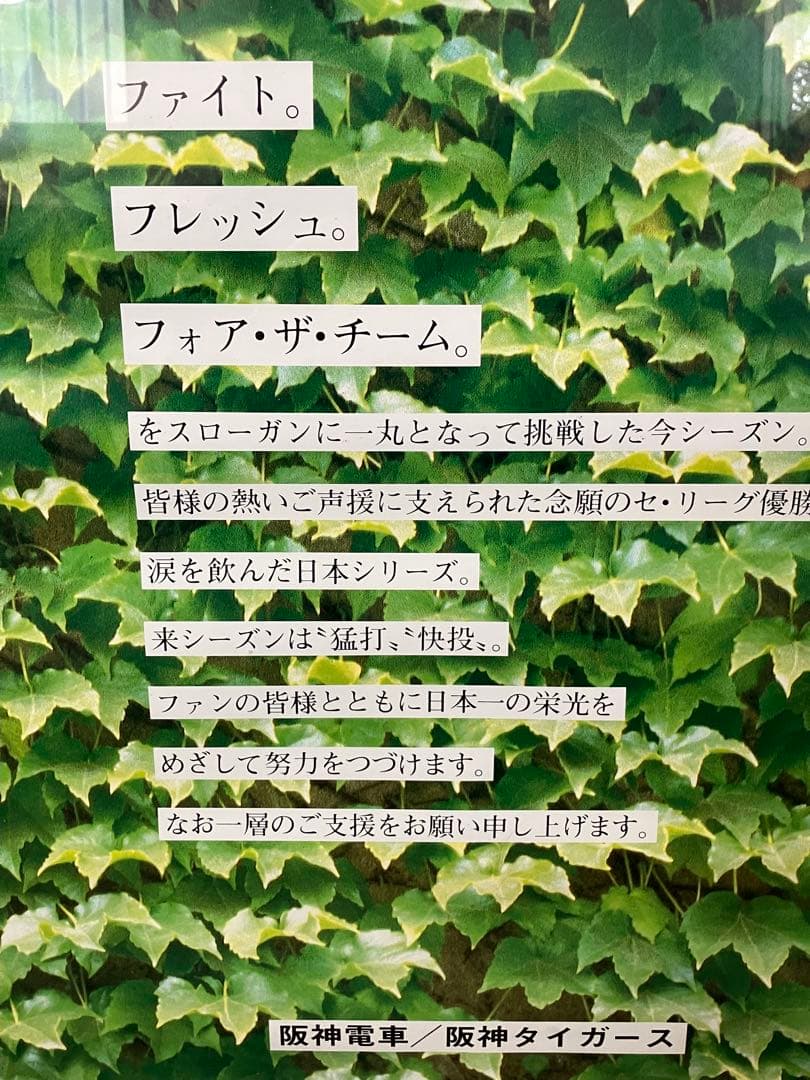 ファイト。
フレッシュ。
フォア・ザ・チーム。
をスローガンに一丸となって挑戦した今シーズン。
皆様の熱いご声援に支えられた念願のセ・リーグ優勝
涙を飲んだ日本シリーズ。
来シーズンは〝猛打〟〝快投〟。
ファンの皆様とともに日本一の栄光を
めざして努力をつづけます。
なお一層のご支援をお願い申し上げます。
阪神電車／阪神タイガース